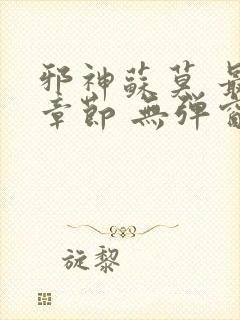 邪神蘇莫 最
章節 無彈窗
旋黎